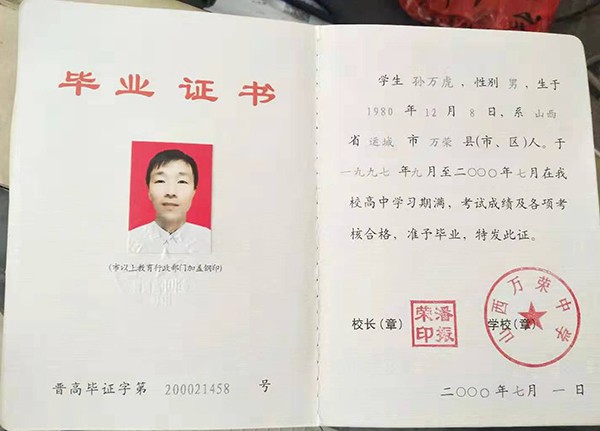 毕业证书
(市以上教育行政部门加盖钢印)
晋高毕证字第 200021458 号
学生 孙万虎 ，性别 男 ，生于
1980 年 12 月 8 日，系 山西
省 运城 市 万荣 县(市、区)人。于
一九九七 年 九 月至二〇〇〇 年 七 月在我
校高中学习期满，考试成绩及各项考
核合格，准予毕业，特发此证。
校长（章）
潘振荣印
学校（章）
山西万荣中学
二〇〇〇 年 七 月 一 日